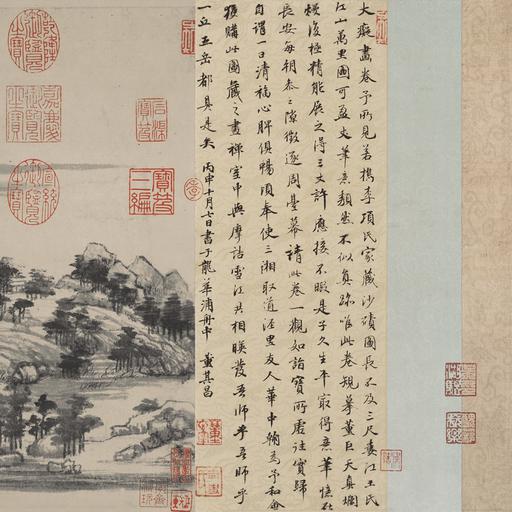 大癡畫卷予所見若檇李項氏家藏沙磧圖長不及三尺婁江王氏
江山萬里圖可盈丈筆意頹然不似真跡唯此卷規摹董巨天真爛
熳復極精能展之得三丈許應接不暇是子久生平最得意筆憶在
長安每朝參之隙徵逐周臺幕請此卷一觀如詣寶所虛往實歸
自謂一日清福心脾俱暢頃奉使三湘取道涇里友人華中翰為予和會
獲購此圖藏之畫禪室中與摩詰雪江共相映發吾師乎吾師乎
一丘五岳都具是矣 丙申十月七日書于龍華浦舟中 董其昌
寶笈三編
石渠寶笈
乾隆御覽之寶
嘉慶御覽之寶
宣統御覽之寶